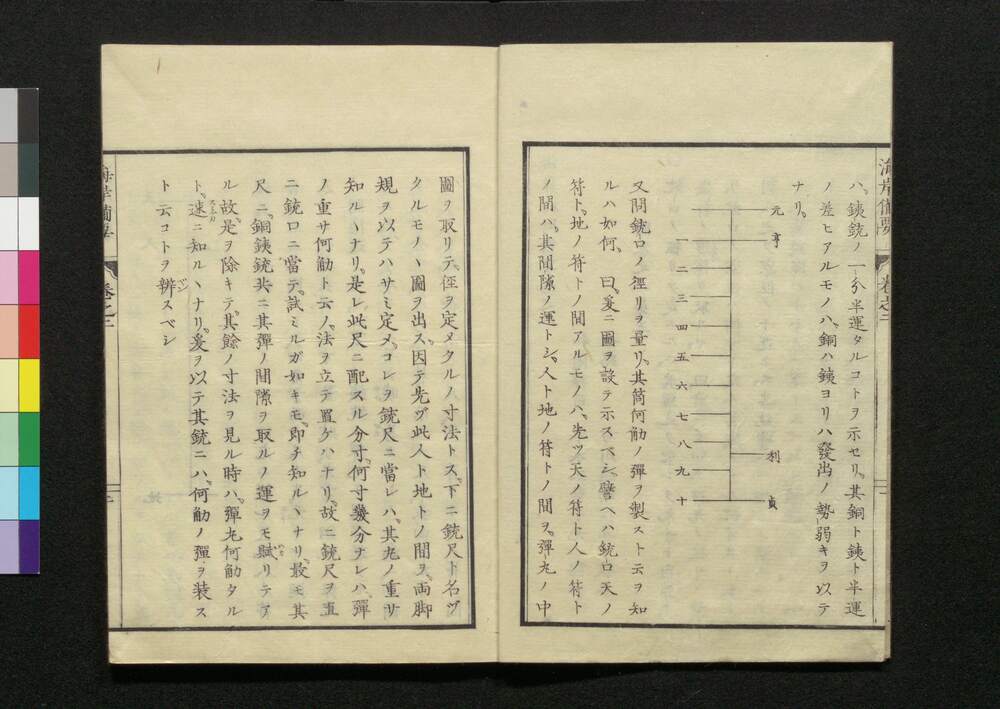 海岸備要 卷之二
ハ、銕銃ノ一分半運タルコトヲ示セリ。其銅ト銕ト半運
ノ差ヒアルモノハ、銅ハ銕ヨリハ發出ノ勢弱キヲ以テ
ナリ。
元 亨 利 貞
一 二 三 四 五 六 七 八 九 十
又問銃口ノ徑リヲ量リ、其筒何觔ノ彈ヲ製スト云ヲ知
ルハ如何。曰、爰ニ圖ヲ設テ示スベシ。譬ヘハ銃口天ノ
符ト、地ノ符トノ間アルモノハ、先ツ天ノ符ト人ノ符ト
ノ間ハ、其間隙ノ運トシ、人ト地ノ符トノ間ヲ、彈丸ノ中
圖ヲ取リテ、徑ヲ定メクルノ寸法トス。下ニ銃尺ト名ヅ
クルモノヽ圖ヲ出ス。因テ先ヅ此人ト地トノ間ヲ、両脚
規ヲ以テハサミ定メ、コレヲ銃尺ニ當レハ、其丸ノ重サ
知ルヽナリ。是レ此尺ニ配スル分寸、何寸幾分ナレハ、彈
ノ重サ何觔ト云ノ法ヲ立テ置ケハナリ。故ニ銃尺ヲ直
ニ銃口ニ當テ、試ミルガ如キモ、即チ知ルヽナリ。最モ其
尺ニ、銅銕銃共ニ其彈ノ間隙ヲ取ルノ運ヲモ賦リテア
ル故、是ヲ除キテ、其餘ノ寸法ヲ見ル時ハ、彈丸何觔タル
ト、速ニ知ルヽナリ。爰ヲ以テ其銃ニハ、何觔ノ彈ヲ装ス
ト云コトヲ辨スベシ
海岸備要 卷之二